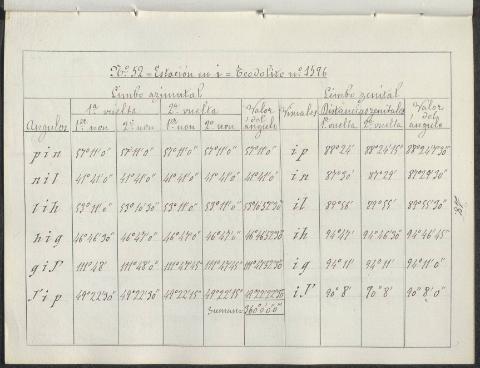 Nº 52 = Estación en i = Teodolito nº 1596
Limbo azimutal Limbo zenital
1ª vuelta 2ª vuelta Valor del ángulo Visuales Distancias zenitales Valor del ángulo
Angulos 1er non 2º non 1er non 2º non 1ª vuelta 2ª vuelta
p i n 57°11'0" 57°11'0" 57°11'0" 57°11'0" 57°11'0" i p 88°24' 88°24'15" 88°24'7"30
n i l 41°41'0" 41°41'0" 41°41'0" 41°41'0" 41°41'0" i n 87°30' 87°29' 87°29'30"
l i h 53°11'0" 53°10'30" 53°11'0" 53°11'0" 53°10'52"30 i l 89°56' 89°55' 89°55'30"
h i g 46°46'30" 46°47'0" 46°47'0" 46°47'0" 46°46'52"30 i h 94°47' 94°46'30" 94°46'45"
g i S 111°48' 111°48'0" 111°47'45" 111°47'45" 111°47'52"30 i g 94°11' 94°11' 94°11'0"
S i p 49°22'30" 49°22'30" 49°22'15" 49°22'15" 49°22'22"30 i S 90°8' 90°8' 90°8'0"
Suman = 360°0'0"